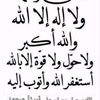 ولا إله إلا الله
والله أكبر
ولا حول ولا قوة إلا بالله
أستغفر الله وأتوب إليه